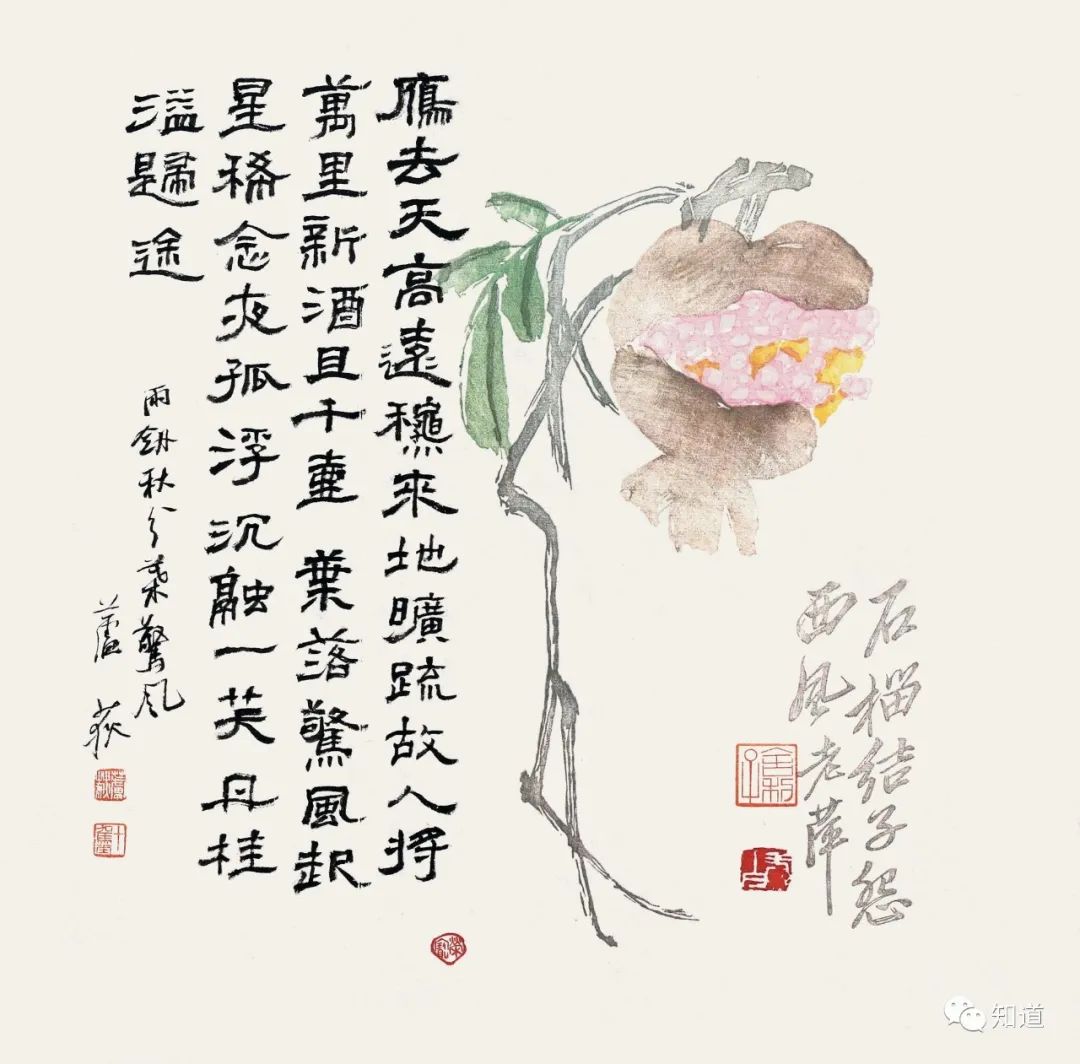 石榴結子怨
西風老萍
鴈去天高遠龝來地曠疏故人將
萬里新酒且千壺葉落驚風起
星稀念夜孤浮沉融一笑丹桂
溢歸途
雨秋分葉驚風
蘆荻
知道